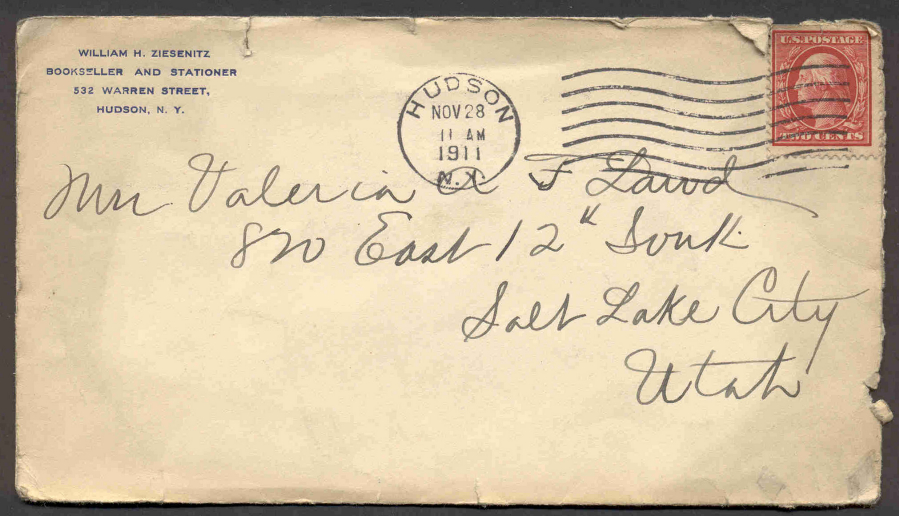 WILLIAM H. ZIESENITZ
BOOKSELLER AND STATIONER
532 WARREN STREET,
HUDSON, N. Y.
HUDSON
NOV 28
11 AM
1911
N.Y.
U.S. POSTAGE
TWO CENTS
Mrs Valeria F
820 East 12th South
Salt Lake City
Utah